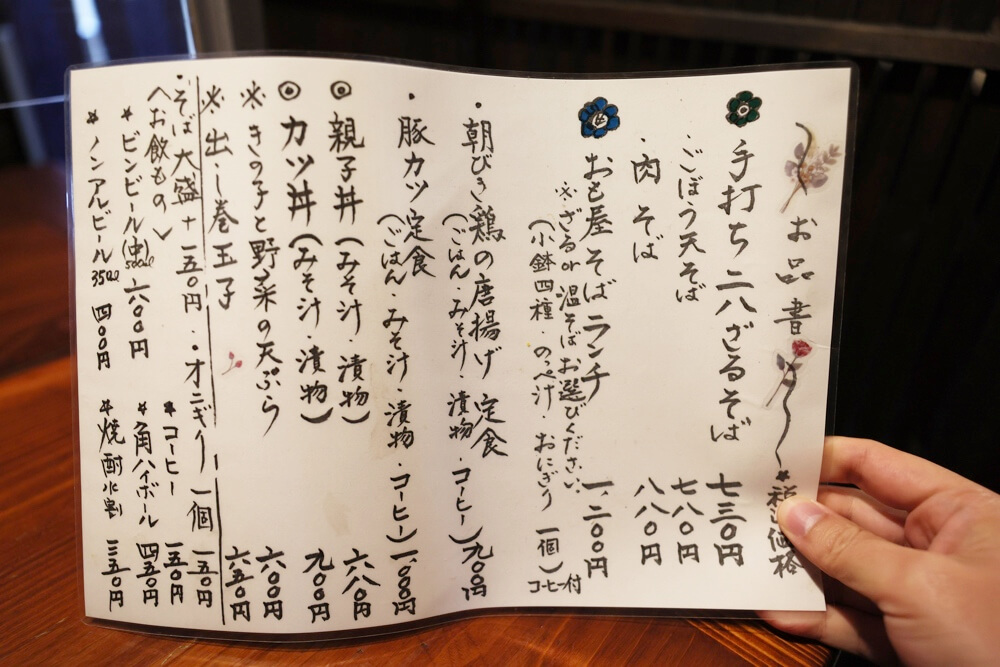 お品書
*税込価格
手打ち二八ざるそば 七三〇円
・ごぼう天そば 七八〇円
・肉そば 八八〇円
おも屋そばランチ 一、二〇〇円
※ざるor温そばお選びください。
(小鉢四種・のっぺ汁・おにぎり一個)コーヒー付
・朝びき鶏の唐揚げ定食 九〇〇円
(ごはん・みそ汁・漬物・コーヒー)
・豚カツ定食 一、一〇〇円
(ごはん・みそ汁・漬物・コーヒー)
◎親子丼(みそ汁・漬物) 六八〇円
◎カツ丼(みそ汁・漬物) 九〇〇円
※きの子と野菜の天ぷら 六〇〇円
※出し巻玉子 六五〇円
・そば大盛+一五〇円・・オニギリ一個 一五〇円
〈お飲もの〉
*コーヒー 一五〇円
*ビンビール(中)500ml 六〇〇円
*角ハイボール 四五〇円
*ノンアルビール350ml 四〇〇円
*焼酎水割 三五〇円